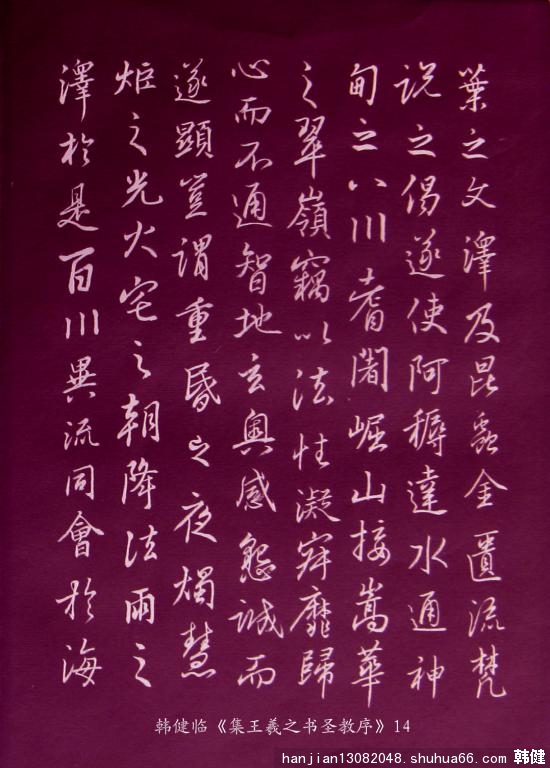 葉之文澤及昆蟲金匱流梵
説之偈遂使阿耨達水通神
甸之八川耆闍崛山接嵩華
之翠嶺竊以法性凝寂靡歸
心而不通智地玄奧感懇誠而
遂顯豈謂重昏之夜燭慧
炬之光火宅之朝降法雨之
澤於是百川異流同會於海
韩健临《集王羲之书圣教序》14
hanjian13082048.shuhua66.com 韩健